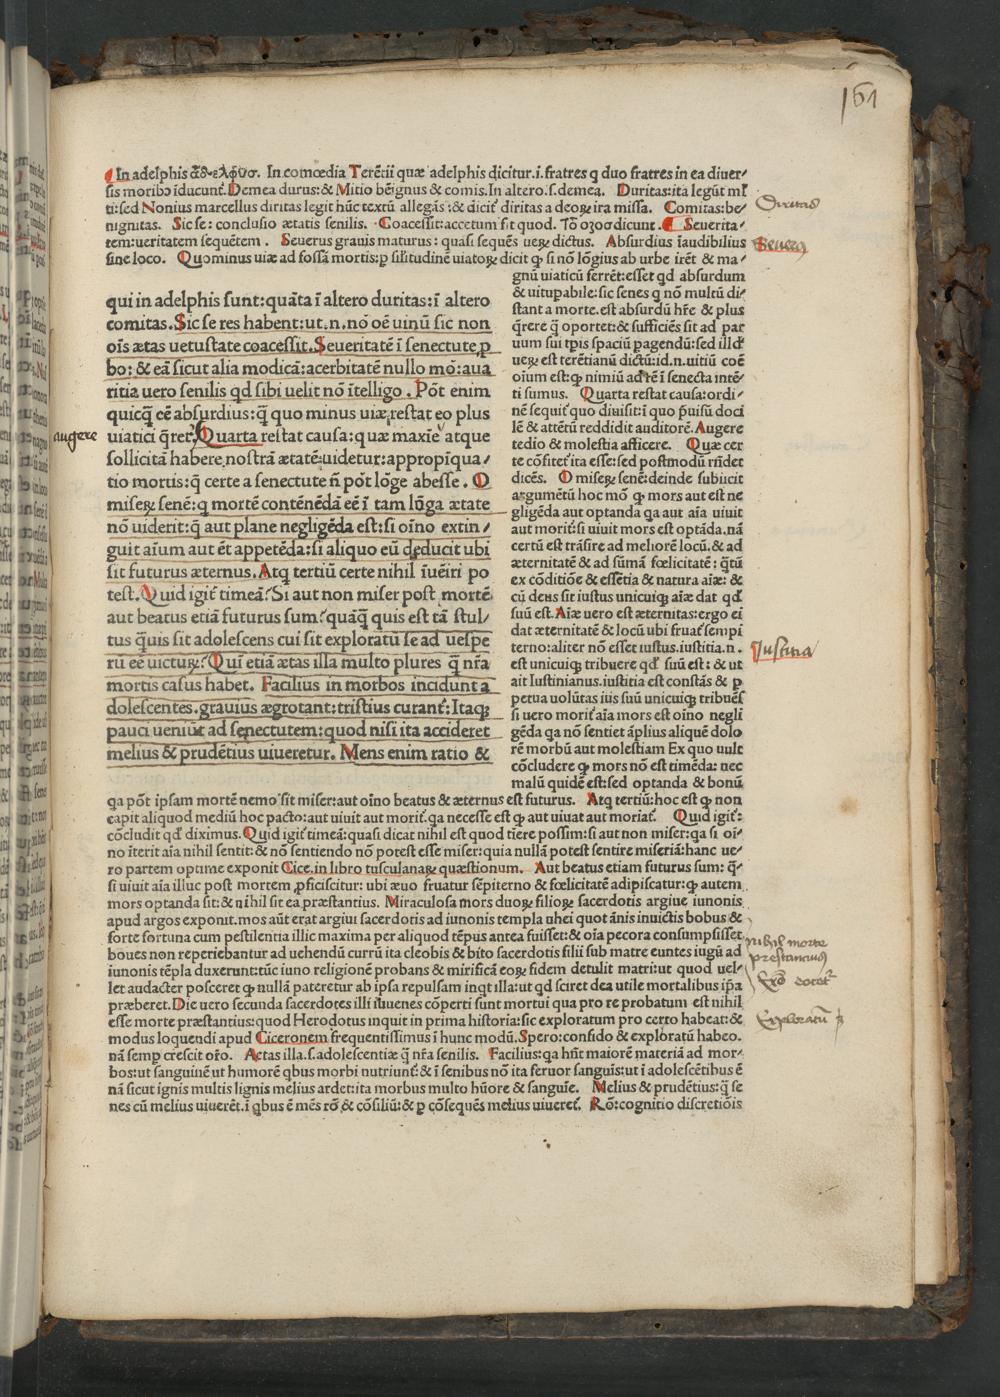 161
In adelphis ἀδελφοσ. In comœdia Terētii quæ adelphis dicitur.i.fratres q duo fratres in ea diuer⸗
sis moribꝰ īducunt̄. Demea durus:& Mitio bēignus & comis. In altero.s.demea. Duritas:ita legūt ml̄
ti:sed Nonius marcellus diritas legit hūc textū allegās:& dicit̄ diritas a deoꝝ ira missa. Comitas:be⸗
nignitas. Sic se: conclusio ætatis senilis. Coacessit:accetum fit quod. Tō οζοσ dicunt. Seuerita⸗
tem:ueritatem sequētem. Seuerus grauis maturus: quasi sequēs ueꝝ dictus. Absurdius īaudibilius
sine loco. Quominus uiæ ad fossā mortis:p sil̄itudinē uiatoꝝ dicit ꝙ si nō lōgius ab urbe irēt & ma⸗
Diritas
Seuerꝰ
qui in adelphis sunt:quāta ī altero duritas:ī altero
comitas. Sic se res habent:ut.n.nō oē uinū sic non
oīs ætas uetustate coacessit. Seueritatē ī senectute p
bo:& eā sicut alia modicā:acerbitatē nullo mō:aua
ritia uero senilis qd sibi uelit nō ītelligo. Pōt enim
quicq̄ eē absurdius:q̄ quo minus uiæ restat eo plus
uiatici q̄ret? Quarta restat causa:quæ maxīe atque
sollicitā habere nostrā ætatē uidetur:appropīqua⸗
tio mortis:q̄ certe a senectute n̄ pōt lōge abesse. O
miseꝝ senē:q mortē contēnēdā eē ī tam lūga ætate
nō uiderit:q̄ aut plane negligēda est:si oīno extin⸗
guit aīum aut ēt appetēda:si aliquo eū deducit ubi
sit futurus æternus. Atq tertiū certe nihil īuēiri po
test. Quid igit̄ timeā? Si aut non miser post mortē
aut beatus etiā futurus sum? quāq̄ quis est tā stul⸗
tus q̄uis sit adolescens cui sit exploratū se ad uespe
rū eē uicturꝝ? Qui etiā ætas illa multo plures q̄ nr̄a
mortis casus habet. Facilius in morbos incidunt a
dolescentes.grauius ægrotant:tristius curant̄:Itaqꝫ
pauci ueniūt ad senectutem:quod nisi ita accideret
melius & prudētius uiueretur. Mens enim ratio &
augere
gnū uiaticū ferrēt:esset qd absurdum
& uitupabile:sic senes q nō multū di⸗
stant a morte.est absurdū hr̄e & plus
q̄rere q̄ oportet:& sufficiēs sit ad par
uum sui tp̄is spaciū pagendū:sed illd̄
ueꝝ est terētianū dictū:id.n.uitiū coē
oīum est:ꝙ nimiū ad rē ī senecta intē⸗
ti sumus. Quarta restat causa:ordi⸗
nē sequit̄ quo diuisit:ī quo p̄uisū doci
lē & attētū reddidit auditorē. Augere
tedio & molestia afficere. Quæ cer
te cōfitet̄ ita esse:sed postmodū rn̄det
dicēs. O miseꝝ senē:deinde subiicit
argumētū hoc mō ꝙ mors aut est ne
gligēda aut optanda qa aut aīa uiuit
aut morit̄:si uiuit mors est optāda.nā
certū est trāsire ad meliorē locū.& ad
æternitatē & ad sūmā fœlicitatē: q̄tū
ex cōditiōe & essētia & natura aīæ: &
cū deus sit iustus unicuiqꝫ aīæ dat qd̄
suū est. Aīæ uero est æternitas:ergo ei
dat æternitatē & locū ubi fruat̄ sempi
terno:aliter nō esset iustus.iustitia.n.
est unicuiqꝫ tribuere qd̄ suū est: & ut
ait Iustinianus.iustitia est constās & p
petua uolūtas ius suū unicuiqꝫ tribuēs
si uero morit̄ aīa mors est oīno negli
gēda qa nō sentiet āplius aliquē dolo
rē morbū aut molestiam Ex quo uult
cōcludere ꝙ mors nō est timēda: nec
malū quidē est:sed optanda & bonū
Iustitia
qa pōt ipsam mortē nemo sit miser:aut oīno beatus & æternus est futurus. Atq tertiū:hoc est ꝙ non
capit aliquod mediū hoc pacto:aut uiuit aut morit̄.qa necesse est ꝙ aut uiuat aut moriat̄. Quid igit̄:
cōcludit qd̄ diximus. Quid igit̄ timeā:quasi dicat nihil est quod tīere possim:si aut non miser:qa si oī⸗
no īterit aīa nihil sentit:& nō sentiendo nō potest esse miser:quia nullā potest sentire miseriā:hanc ue⸗
ro partem optime exponit Cice.in libro tusculanaꝝ quæstionum. Aut beatus etiam futurus sum: q̄⸗
si uiuit aīa illuc post mortem ꝓficiscitur: ubi æuo fruatur sēpiterno & fœlicitatē adipiscatur:ꝙ autem
mors optanda sit:& nihil sit ea præstantius. Miraculosa mors duoꝝ filioꝝ sacerdotis argiuæ iunonis
apud argos exponit.mos aūt erat argiui sacerdotis ad iunonis templa uhei quot ānis inuictis bobus &
forte fortuna cum pestilentia illic maxima per aliquod tēpus antea fuisset:& oīa pecora consumpsisset
boues non reperiebantur ad uehendū currū ita cleobis & bito sacerdotis filii sub matre euntes iugū ad
iunonis tēpla duxerunt:tūc iuno religionē probans & mirificā eoꝝ fidem detulit matri:ut quod uel⸗
let audacter posceret ꝙ nullā pateretur ab ipsa repulsam inqt illa:ut qd sciret dea utile mortalibus ip̄a
præberet. Die uero secunda sacerdotes illi iuuenes cōperti sunt mortui qua pro re probatum est nihil
esse morte præstantius:quod Herodotus inquit in prima historia:sic exploratum pro certo habeat:&
modus loquendi apud Ciceronem frequentissimus ī hunc modū. Spero:confido & exploratū habeo.
nā semp crescit oro. Aetas illa.s.adolescentiæ q̄ nr̄a senilis. Facilius:qa hn̄t maiorē materiā ad mor⸗
bos:ut sanguinē ut humorē qbus morbi nutriunt̄:& ī senibus nō ita feruor sanguis:ut ī adolescētibus ē
nā sicut ignis multis lignis melius ardet:ita morbus multo hūore & sanguīe. Melius & prudētius:q̄ se
nes cū melius uiuerēt.ī qbus ē mēs rō & cōsiliū:& p cōsequēs melius uiueret̄. Rō:cognitio discretiōis
nihil morte
prestanciꝰ
Exploratū